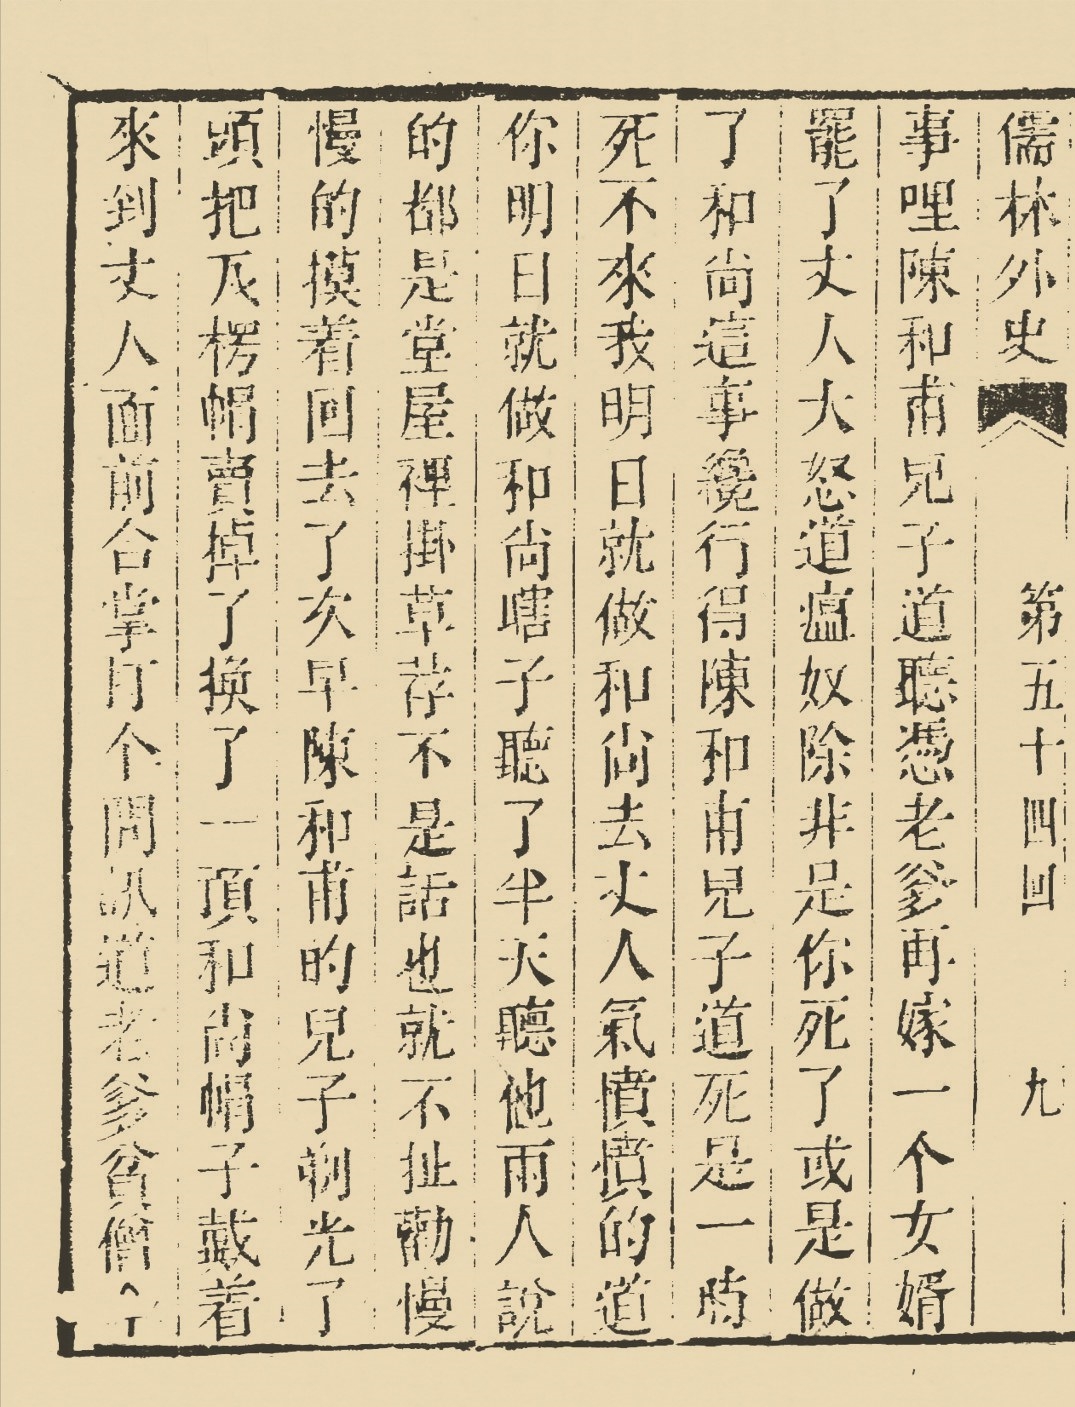 儒林外史 第五十四回 九
事哩陳和甫兒子道聽憑老爹再嫁一个女婿
罷了丈人大怒道瘟奴除非是你死了或是做
了和尚這事纔行得陳和甫兒子道死是一時
死不來我明日就做和尚去丈人氣憤憤的道
你明日就做和尚瞎子聽了半天聽他兩人說
的都是堂屋裡掛草荐不是話也就不扯勸慢
慢的摸着回去了次早陳和甫的兒子剃光了
頭把瓦楞帽賣掉了換了一頂和尚帽子戴着
來到丈人面前合掌打个問訊道老爹貧僧今